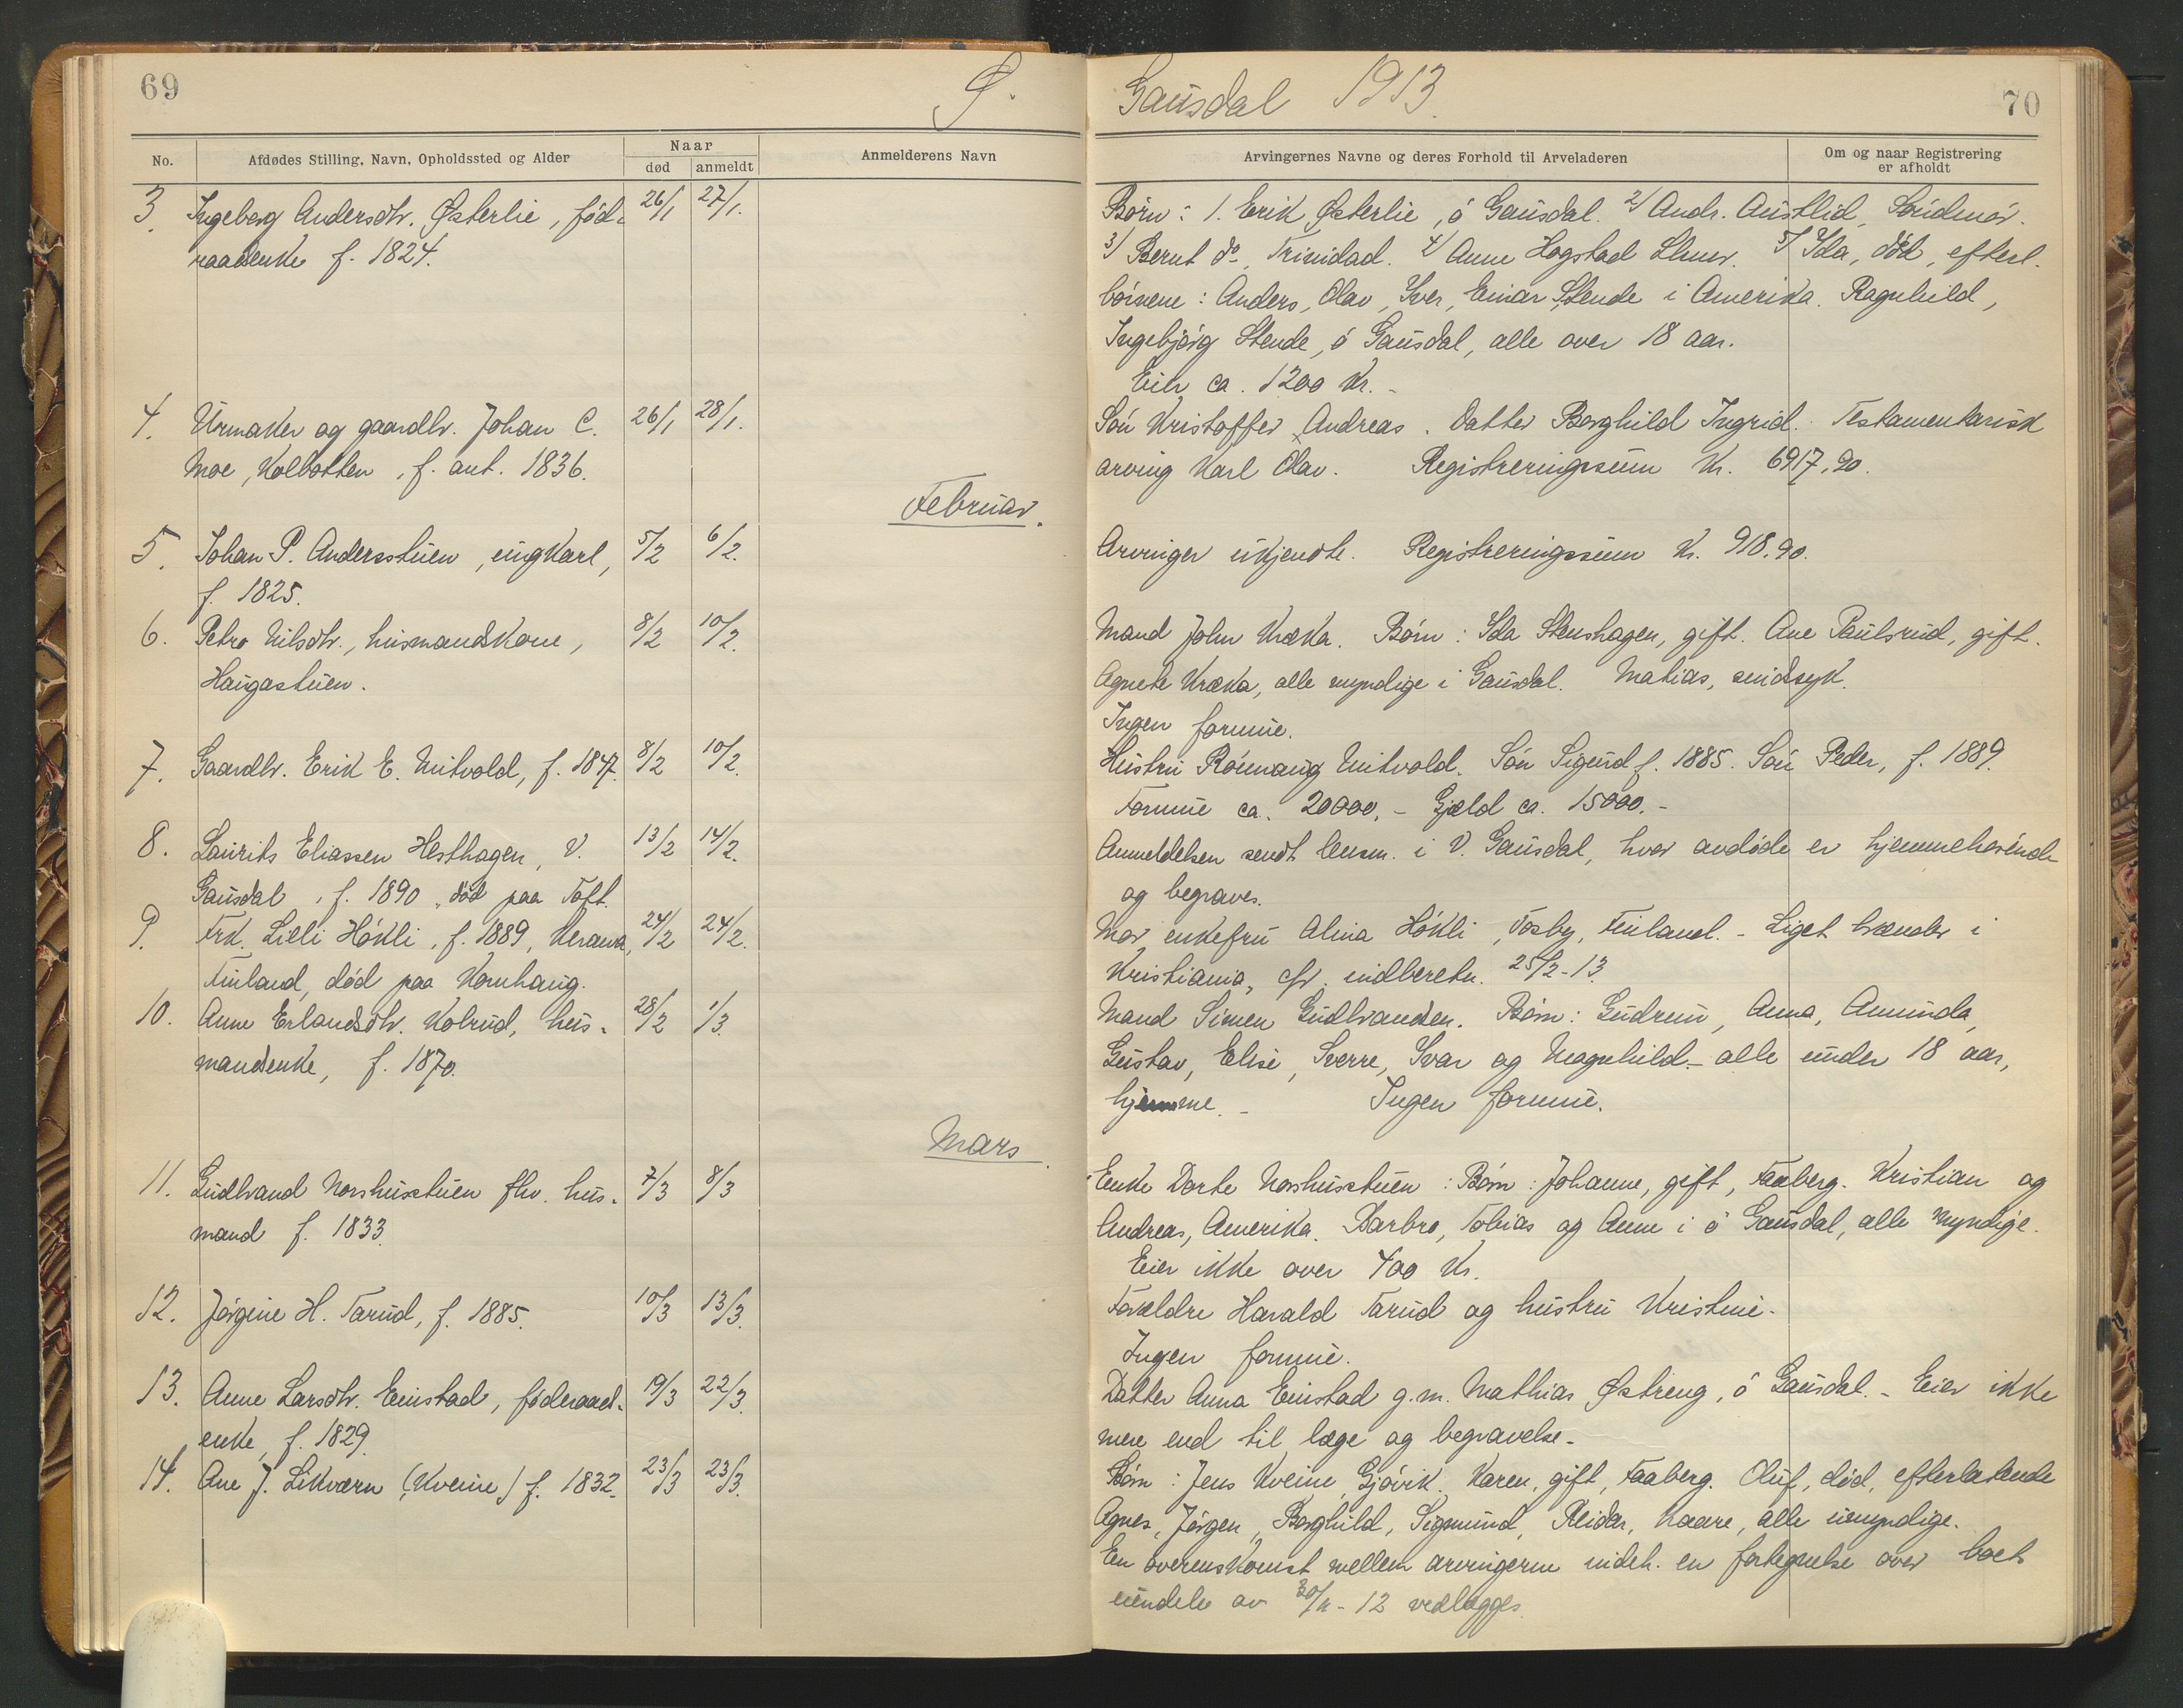 69
Ø. Gausdal 1913.
70
No.
Afdødes Stilling, Navn, Opholdssted og Alder
Naar
død
anmeldt
Anmelderens Navn
Arvingernes Navne og deres Forhold til Arveladeren
Om og naar Registrering
er afholdt
3. Ingeborg Andersdtr. Østerlie, fød- 26/1 27/1.
raadenke f. 1824.
Børn: 1. Erik Østerlie, ö Gausdal. 2/ Andr. Austlid, Söndmör.
3/ Bernt do, Trinidad. 4/ Anne Hogstad 5/ Ida, död, efterl.
börnene: Anders, Olav, Iver, Einar Stende i Amerika. Ragnhild,
Ingebjörg Stende, ö Gausdal, alle over 18 aar.
Eier ca. 1200 Kr. -
4. Urmaker og gaardbr. Johan C. 26/1 28/1.
Moe, Kolbotten, f. ant. 1836.
Sön Kristoffer Andreas. Datter Borghild Ingrid. Testamentarisk
arving Karl Olav. Registreringssum Kr. 6917,90.
Februar.
5. Johan P. Andersstuen, ungkarl, 5/2 6/2.
f. 1825.
Arvinger ukjendte. Registreringssum Kr. 918.90.
6. Petro Nilsdtr., husmandskone, 8/2 10/2.
Haugastuen.
Mand John Kræka. Börn: Ida Stenshagen, gift. Ane Paulsrud, gift.
Agnete Kræka, alle myndige i Gausdal. Matias, sindssyk.
Ingen formue.
7. Gaardbr. Erik E. Mitvold, f. 1847. 8/2 10/2.
Hustru Rönnaug Mitvold. Sön Sigurd f. 1885. Sön Peder, f. 1889.
Formue ca. 20000.- Gjæld ca. 15000.-
8. Laurits Eliassen Hesthagen, V. 13/2 14/2.
Gausdal, f. 1890, död paa Toft.
Anmeldelsen sendt lensm. i V. Gausdal, hvor avdöde er hjemmehörende
og begraves.
9. Frk. Lilli Hökli, f. 1889, Kerava, 24/2 24/2.
Finland, död paa Kornhaug.
Mor, enkefru Alina Hökli, Tosby, Finland. - Liget brændes i
Kristiania, cfr. indberetn. 25/2-13.
10. Anne Erlandsdtr. Kolrud, hus- 28/2 1/3.
mandsenke, f. 1870.
Mand Simen Gudbrandsen. Börn: Gudrun, Anna, Amunda,
Gustav, Elise, Sverre, Ivar og Magnhild - alle under 18 aar,
hjemme. - Ingen formue.
Mars.
11. Gudbrand Norshusstuen fhv. hus- 7/3 8/3
mand f. 1833.
Enke Dorte Norshusstuen: Börn: Johanne, gift, Faaberg. Kristian og
Andreas, Amerika. Barbro, Tobias og Anne i ö Gausdal, alle myndige.
Eier ikke over 400 Kr.
12. Jörgine H. Tarud, f. 1885. 10/3 13/3.
Forældre Harald Tarud og hustru Kristine.
Ingen formue.
13. Anne Larsdtr. Einstad, föderaad- 19/3 22/3.
enke, f. 1829.
Datter Anna Einstad g.m. Mathias Østreng, ö Gausdal. - Eier ikke
mere end til læge og begravelse.
14. Ane J. Likværn (Kveine) f. 1832. 23/3 23/3.
Börn: Jens Kveine, Gjövik. Karen, gift, Faaberg. Oluf, död, efterlatende
Agnes, Jörgen, Borghild, Sigmund, Reidar, Kaare, alle umyndige.
En overenskomst mellem arvingerne indeh. en fortegnelse over boets
eiendele av 30/11-12 vedlægges.